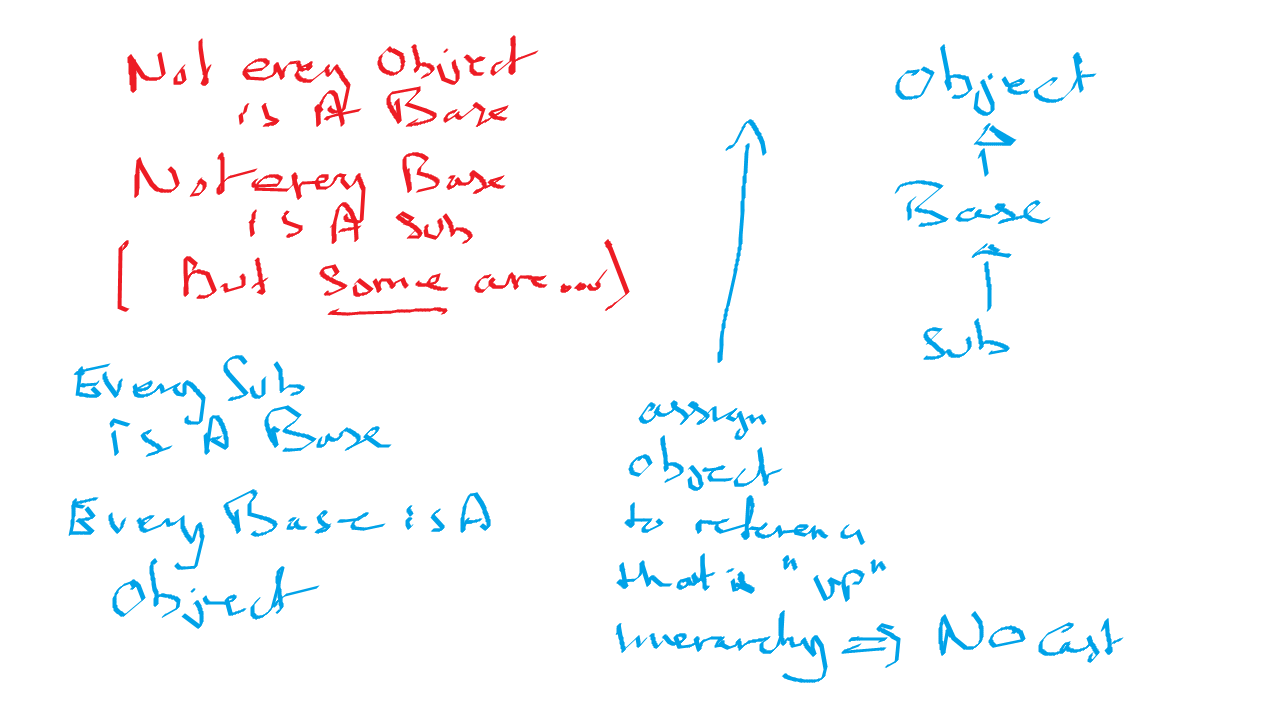 Not every Object
is A Base
Not every Base
is A Sub
( But some are...)
Every Sub
is A Base
Every Base is A
Object
Object
Base
Sub
assign
object
to reference
that is "up"
hierarchy => NO Cast